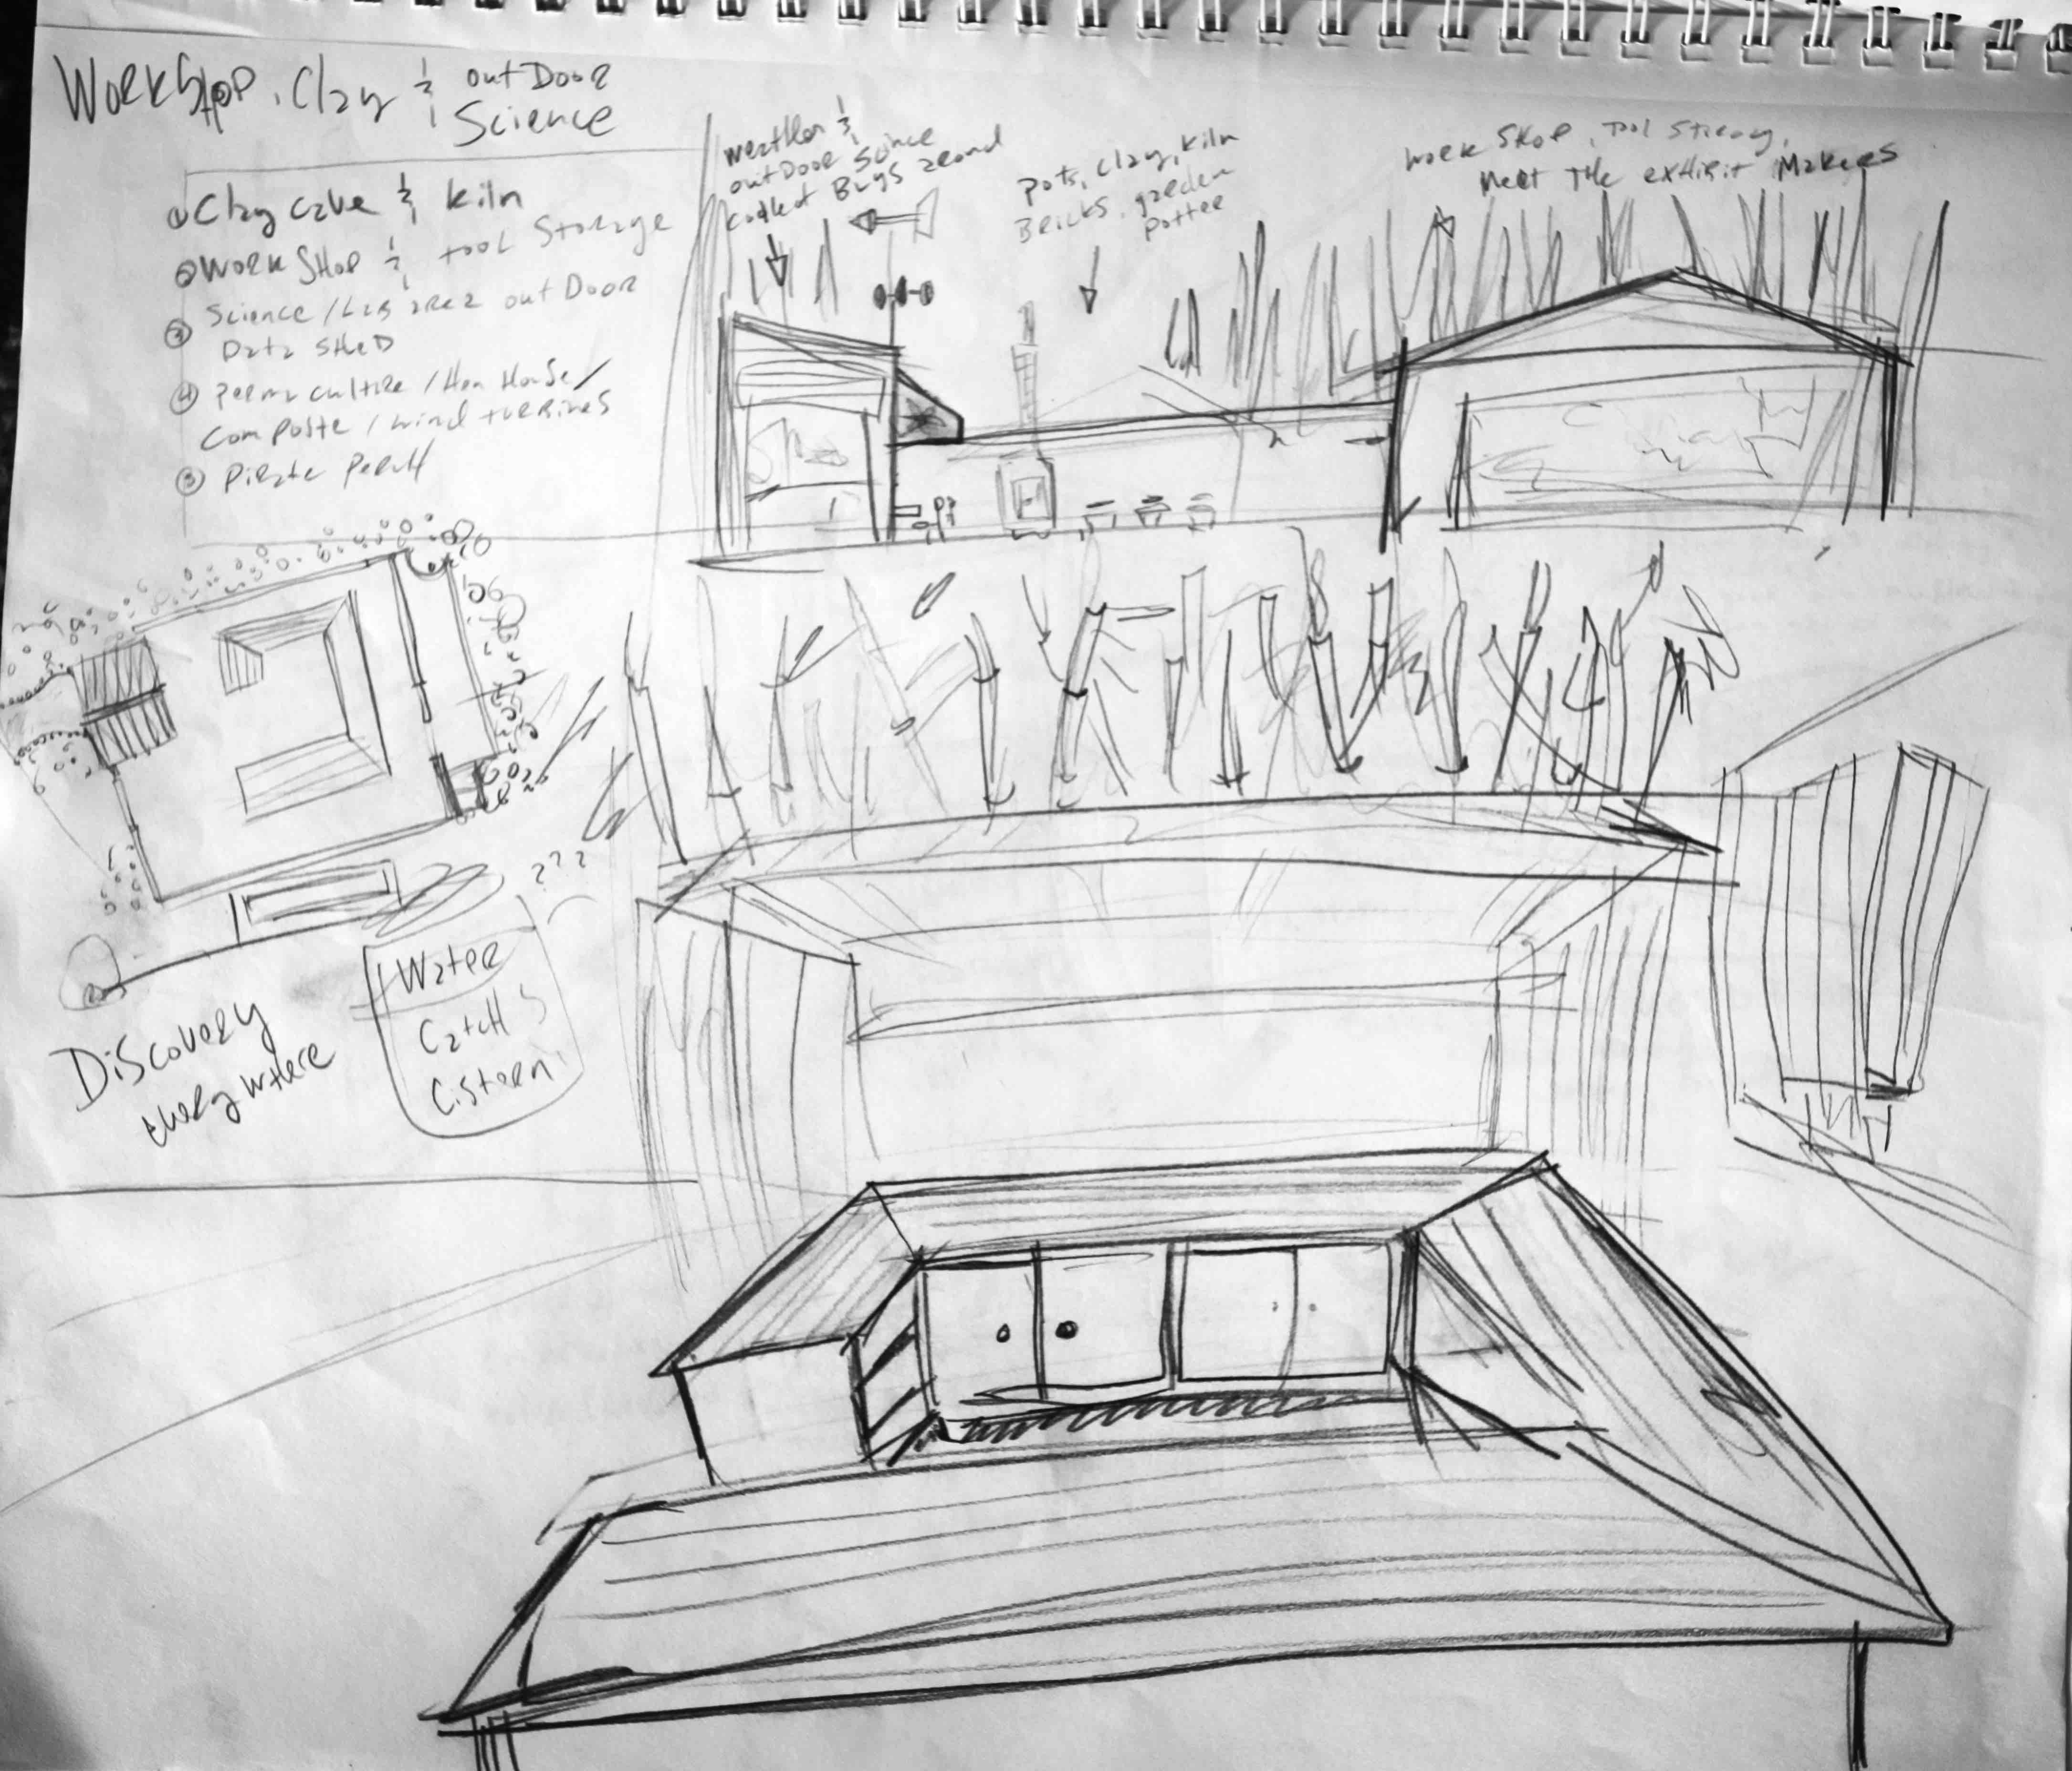 WorkShop, Clay & outDoor
Science
① Clay cave & Kiln
② Work SHop & tool Storage
③ Science / Lab area outDoor
Data SHeD
④ Perma culture / Hen House /
Composte / wind turbines
⑤ Pirate PercH
weather &
outDoor Science
collect Bugs around
Pots, Clay, Kiln
Bricks, garden
Potter
work SHop, Tool
Meet The exHibit Makers
???
Water
CatcH
Cistern
Discovery
every wHere